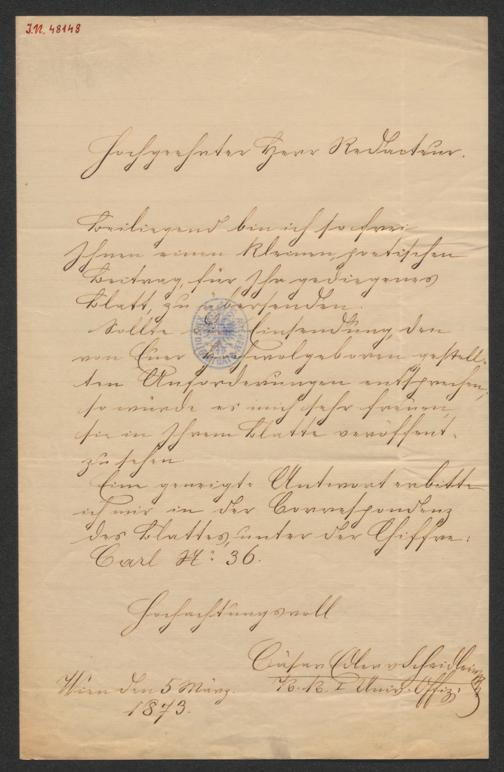 I.N. 48148
Hochgeehrter Herr Redacteur.
Beiliegend bin ich so frei
Ihnen einen kleinen poetischen
Beitrag, für Ihr gediegenes
Blatt, zu übersenden.
Sollte Einsendung, den
von Euer Hochwolgeboren gestell-
ten Anforderungen entsprechen,
so würde es mich sehr freuen,
sie in Ihrem Blatte veröffent-
zu sehen
Eine geneigte Antwort erbitte
ich mir in der Correspondenz
des Blattes, unter der Chiffre:
Carl N: 36.
Hochachtungsvoll
Cäsar Edler v. Scheidlein
Wien den 5 März. K. K.
1873.